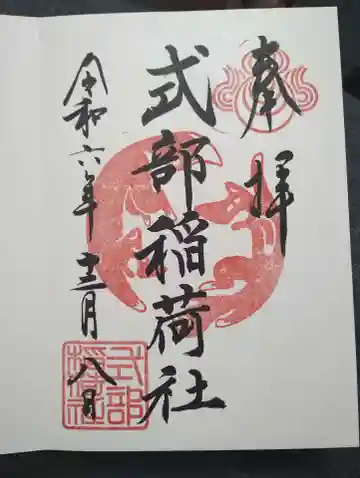 奉拝
式部稲荷社
令和六年十二月八日
式部
稲荷社